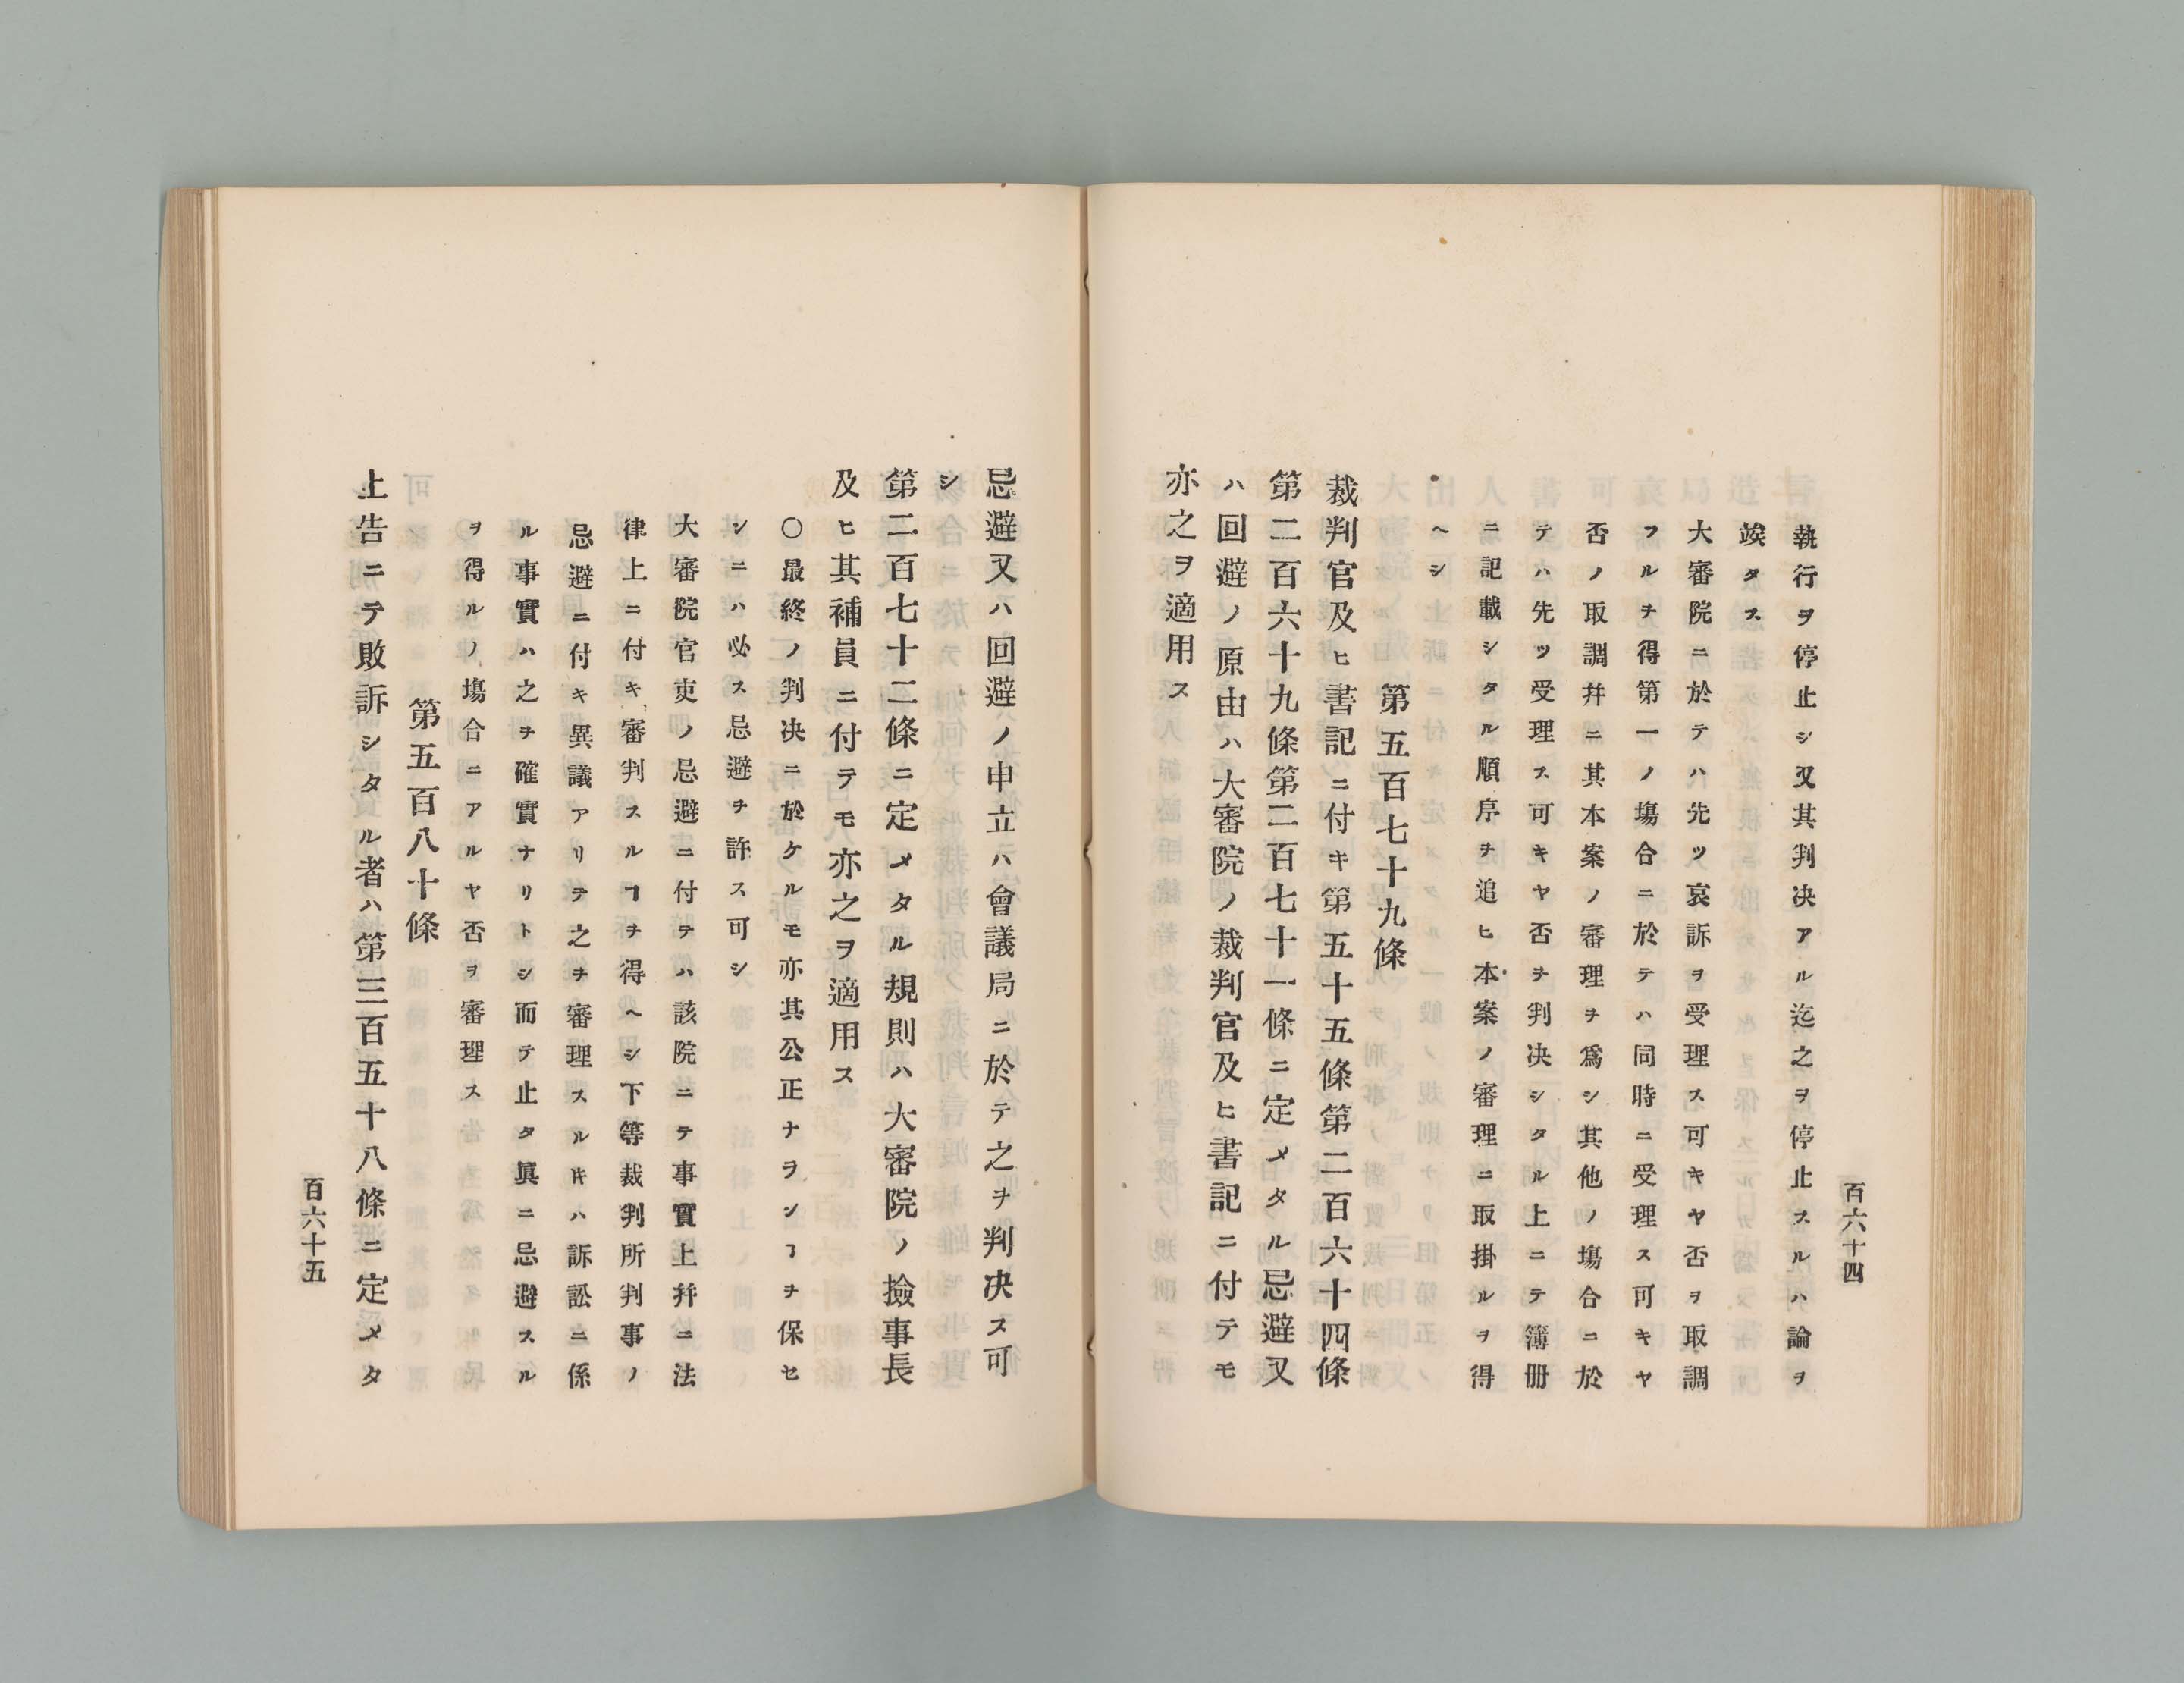 百六十四
執行ヲ停止シ又其判决アル迄之ヲ停止スルハ論ヲ
竢タス
大審院ニ於テハ先ツ哀訴ヲ受理ス可キヤ否ヲ取調
フルヿヲ得第一ノ塲合ニ於テハ同時ニ受理ス可キヤ
否ノ取調幷ニ其本案ノ審理ヲ爲シ其他ノ塲合ニ於
テハ先ツ受理ス可キヤ否ヲ判决シタル上ニテ簿册
ニ記載シタル順序ヲ追ヒ本案ノ審理ニ取掛ルヲ得
ヘシ
第五百七十九條
裁判官及ヒ書記ニ付キ第五十五條第二百六十四條
第二百六十九條第二百七十一條ニ定メタル忌避又
ハ回避ノ原由ハ大審院ノ裁判官及ヒ書記ニ付テモ
亦之ヲ適用ス
忌避又ハ回避ノ申立ハ會議局ニ於テ之ヲ判决ス可
シ
第二百七十二條ニ定メタル規則ハ大審院ノ撿事長
及ヒ其補員ニ付テモ亦之ヲ適用ス
〇最終ノ判决ニ於ケルモ亦其公正ナランヿヲ保セ
シニハ必ス忌避ヲ許ス可シ
大審院官吏ノ忌避ニ付テハ該院ニテ事實上幷ニ法
律上ニ付キ審判スルヿヲ得ヘシ下等裁判所判事ノ
忌避ニ付キ異議アリテ之ヲ審理スル𪜈ハ訴訟ニ係
ル事實ハ之ヲ確實ナリトシ而テ止タ眞ニ忌避スル
ヲ得ルノ塲合ニアルヤ否ヲ審理ス
第五百八十條
上告ニテ敗訴シタル者ハ第三百五十八條ニ定メタ
百六十五